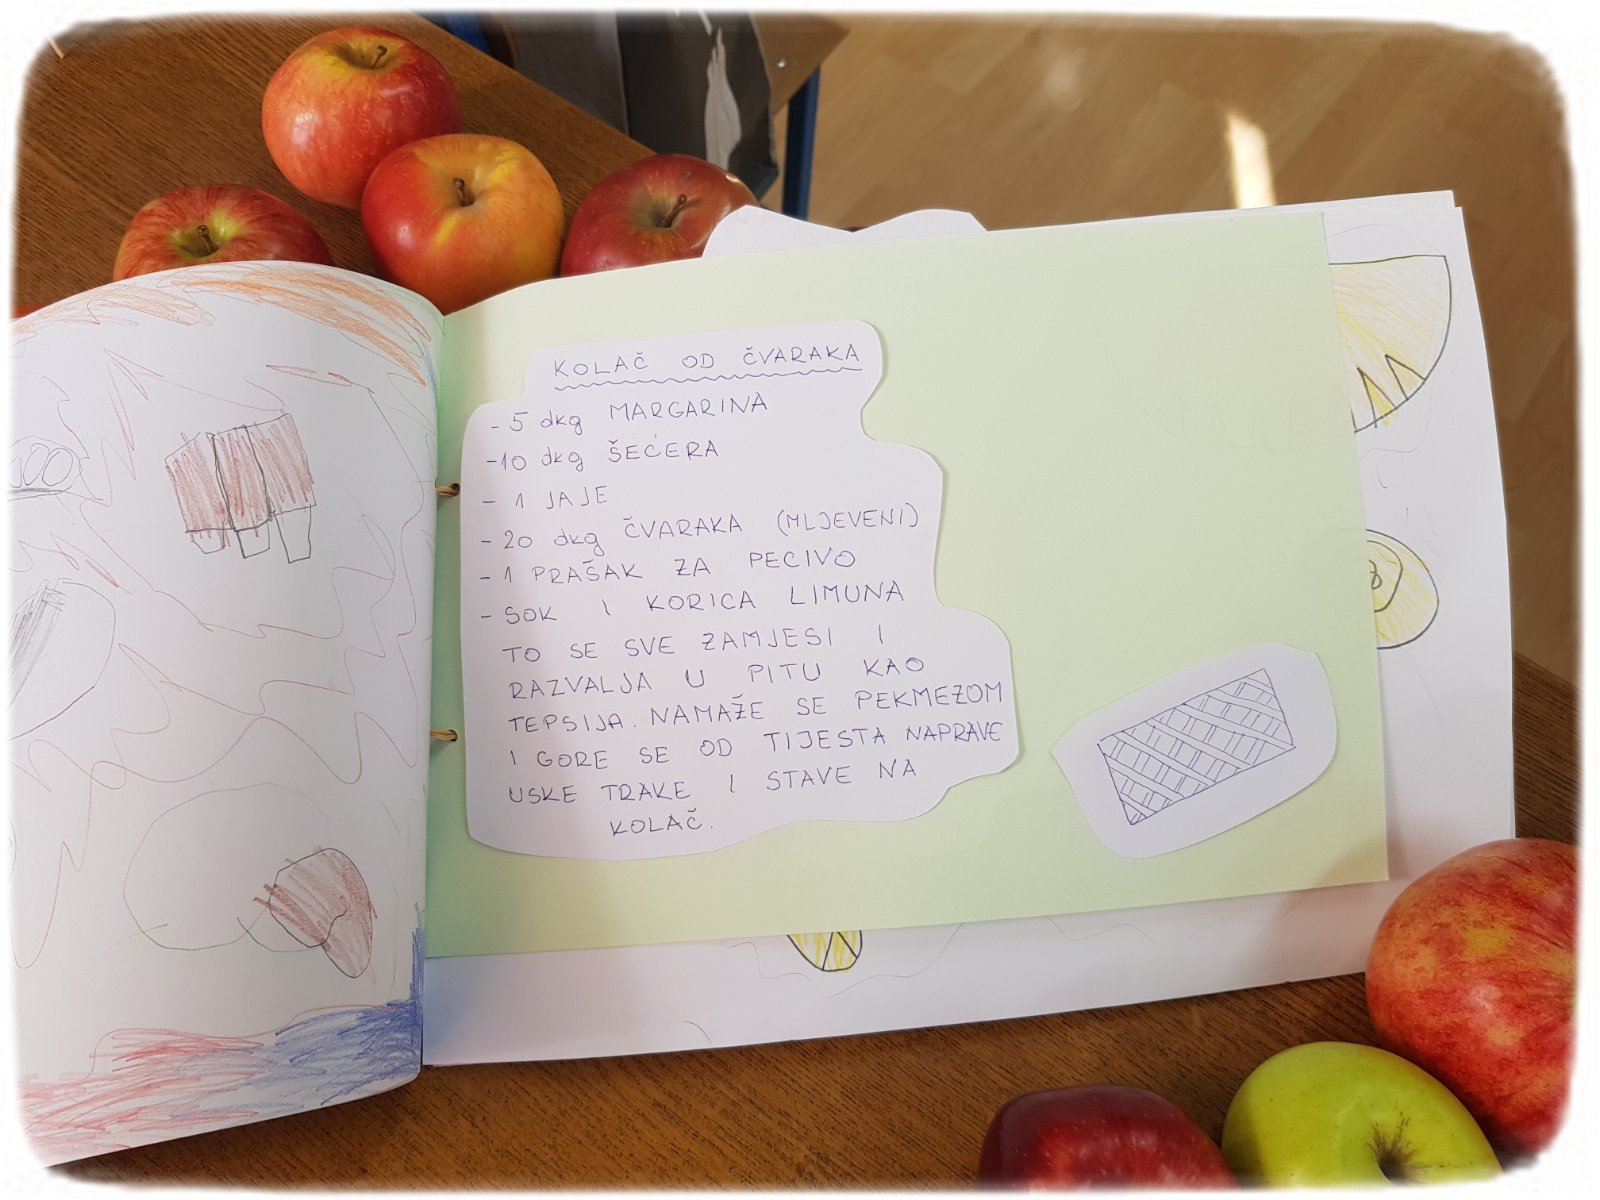 KOLAČ OD ČVARAKA
- 5 dkg MARGARINA
-10 dkg ŠEĆERA
- 1 JAJE
- 20 dkg ČVARAKA (MLJEVENI)
- 1 PRAŠAK ZA PECIVO
- SOK I KORICA LIMUNA
TO SE SVE ZAMJESI I
RAZVALJA U PITU KAO
TEPSIJA. NAMAŽE SE PEKMEZOM
I GORE SE OD TIJESTA NAPRAVE
USKE TRAKE I STAVE NA
KOLAČ.